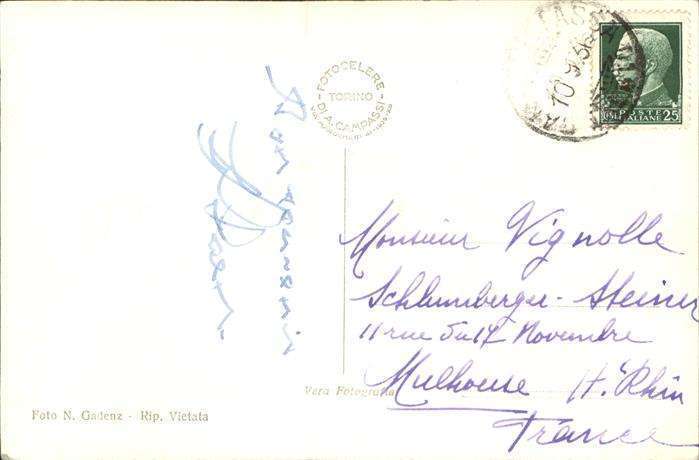 FOTOCELERE
TORINO
DI A. CAMPASSI
10.9.36
POSTE
ITALIANE
25
Monsieur Vignolle
Schlumberger-Steiner
11 rue du 17 Novembre
Mulhouse Ht Rhin
France
Vera Fotografia
Foto N. Gadenz - Rip. Vietata